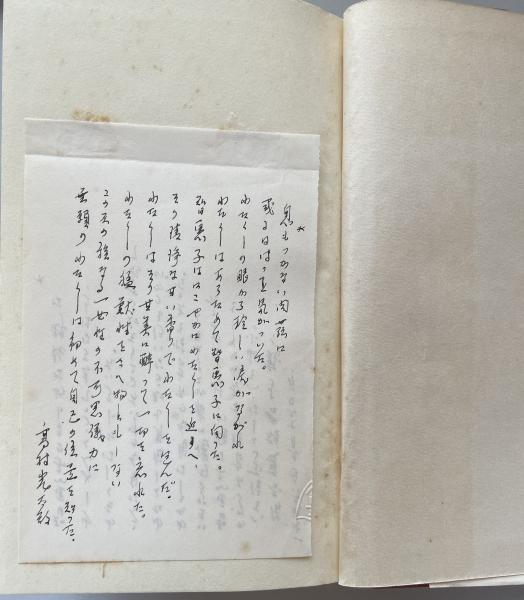 息もつかない肉薄に
或る日はっと気がついた。
わたくしの眼から珍しい涙がながれ
わたくしはあらためて智恵子に向った。
智恵子はにこやかにわたくしを迎へ
その清浄な甘い香りでわたくしを包んだ。
わたくしはその甘美に酔って一切を忘れた。
わたくしの猛獣性をさへ物ともしない
この天の族なる一女性の不可思議力に
無頼のわたくしは初めて自己の位置を知った。
高村光太郎